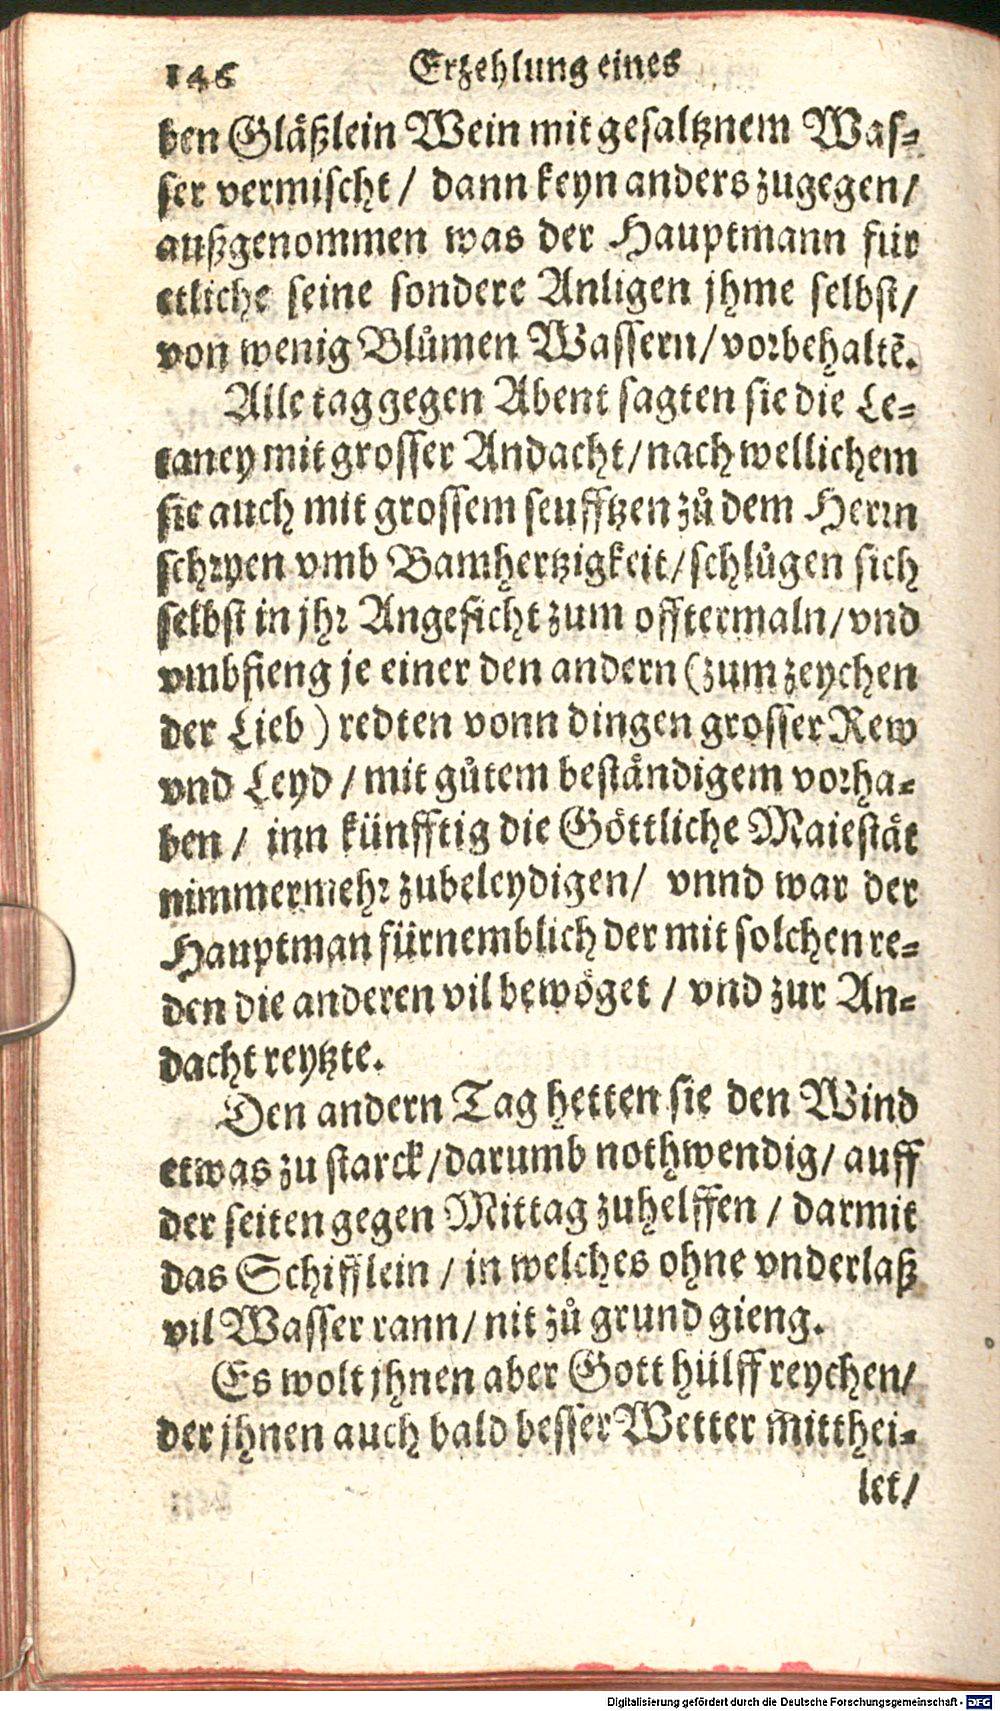 146 Erzehlung eines
ben Gläßlein Wein mit gesaltznem Was-
ser vermischt / dann keyn anders zugegen /
außgenommen was der Hauptmann für
etliche seine sondere Anligen jhme selbst /
von wenig Blůmen Wassern / vorbehaltẽ.
Alle tag gegen Abent sagten sie die Le-
taney mit grosser Andacht / nach wellichem
sie auch mit grossem seufftzen zů dem Herrn
schryen vmb Bamhertzigkeit / schlůgen sich
selbst in jhr Angesicht zum offtermaln / vnd
vmbfieng je einer den andern (zum zeychen
der Lieb) redten vonn dingen grosser Rew
vnd Leyd / mit gůtem beständigem vorha-
ben / inn künfftig die Göttliche Maiestät
nimmermehr zubeleydigen / vnnd war der
Hauptman fürnemblich der mit solchen re-
den die anderen vil bewöget / vnd zur An-
dacht reytzte.
Den andern Tag hetten sie den Wind
etwas zu starck / darumb nothwendig / auff
der seiten gegen Mittag zuhelffen / darmit
das Schifflein / in welches ohne vnderlaß
vil Wasser rann / nit zů grund gieng.
Es wolt jhnen aber Gott hülff reychen /
der jhnen auch bald besser Wetter mitthei-
let /
Digitalisierung gefördert durch die Deutsche Forschungsgemeinschaft - DFG